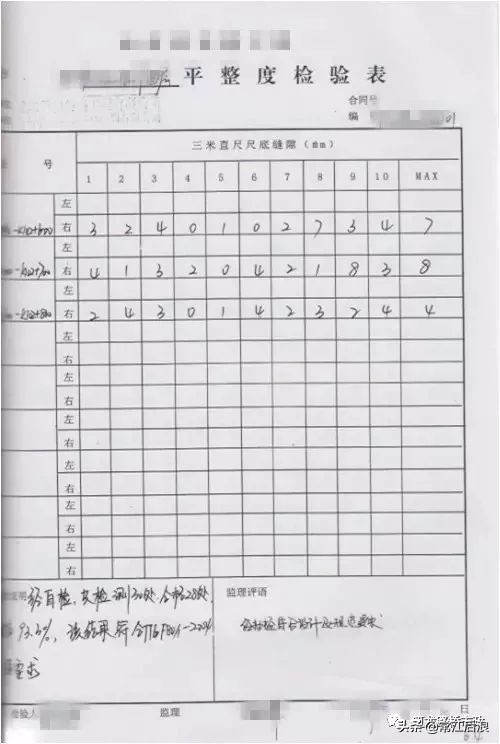 平整度检验表
合同号
编 01
号 三米直尺尺底缝隙(mm)
1 2 3 4 5 6 7 8 9 10 MAX
左
右 3 2 4 0 1 0 2 7 3 4 7
左
右 4 1 3 2 0 4 2 1 8 3 8
左
右 2 4 3 0 1 4 2 3 2 4 4
左
右
左
右
左
右
左
右
左
右
经自检,共检测30处,合格28处,
93.3%,该结果符合JTG F80/1-2004
要求
监理评语
符合设计及规范要求
检验人 监理 日
头条@常江后浪